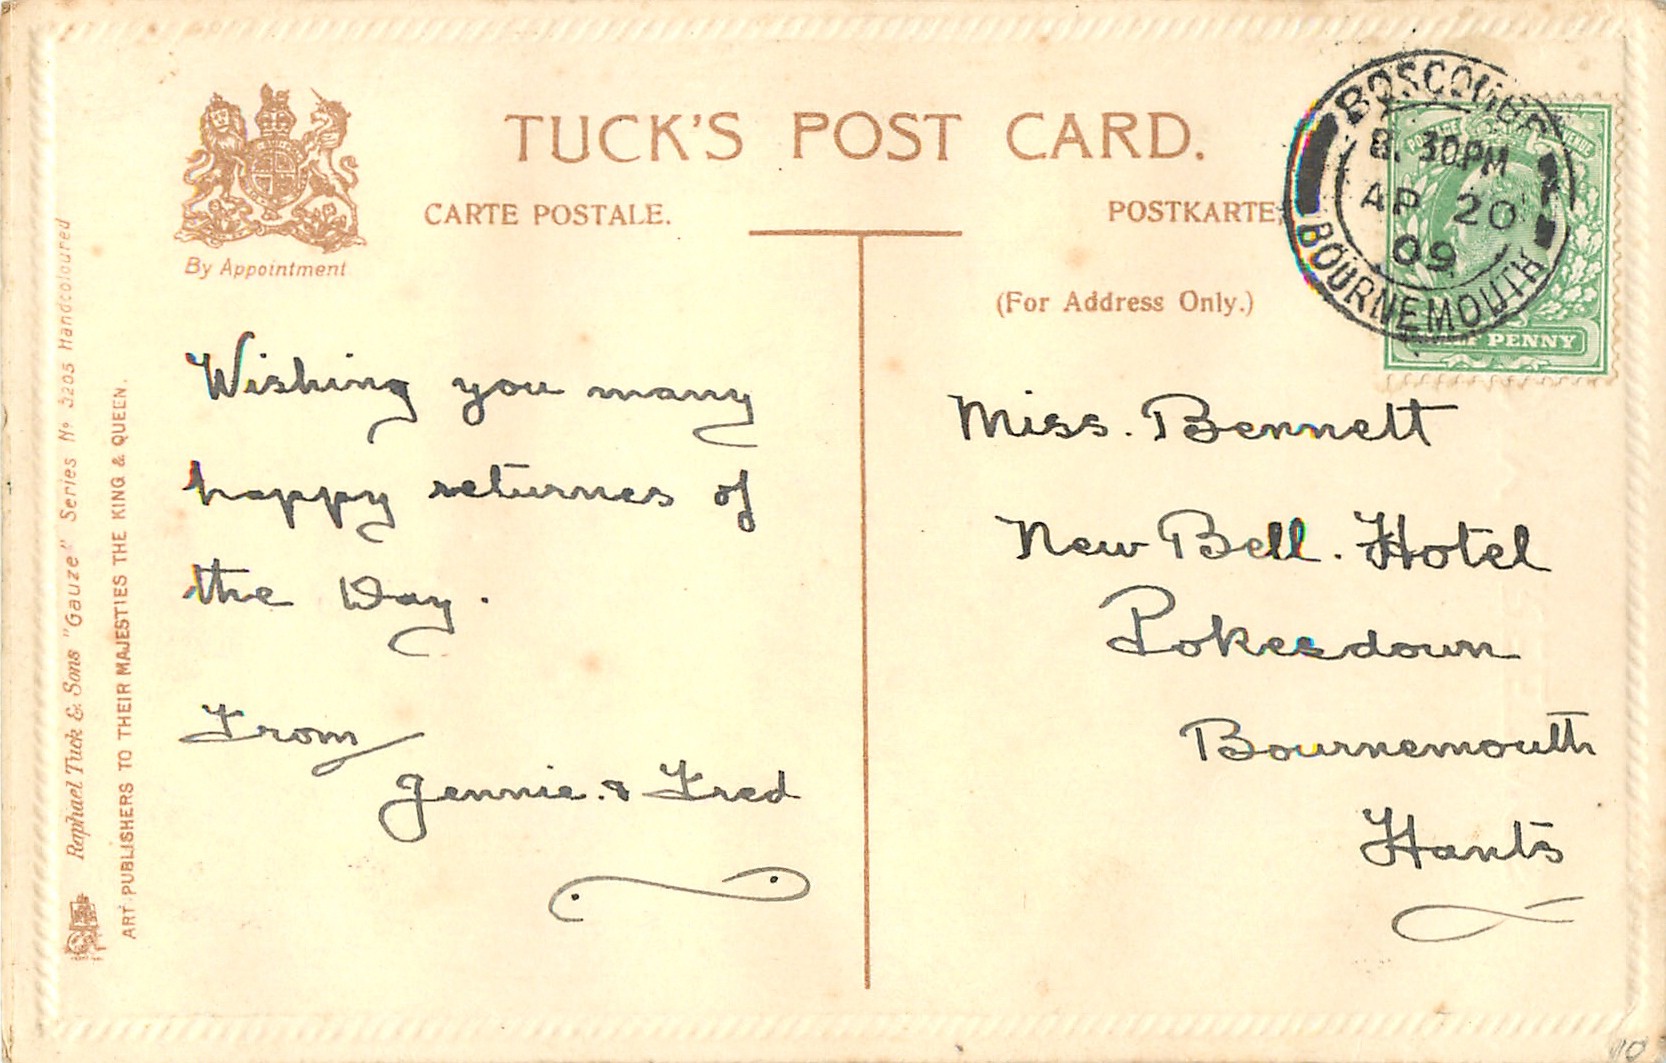 TUCK'S POST CARD.
CARTE POSTALE.
POSTKARTE
By Appointment
(For Address Only.)
BOSCOMBE
8.30PM
AP 20
09
BOURNEMOUTH
PENNY
Wishing you many
happy returnes of
the Day.
From
Jennie. & Fred
Miss. Bennett
New Bell. Hotel
Pokesdown
Bournemouth
Hants
Raphael Tuck & Sons "Gauze" Series No 3205 Handcoloured
ART PUBLISHERS TO THEIR MAJESTIES THE KING & QUEEN.